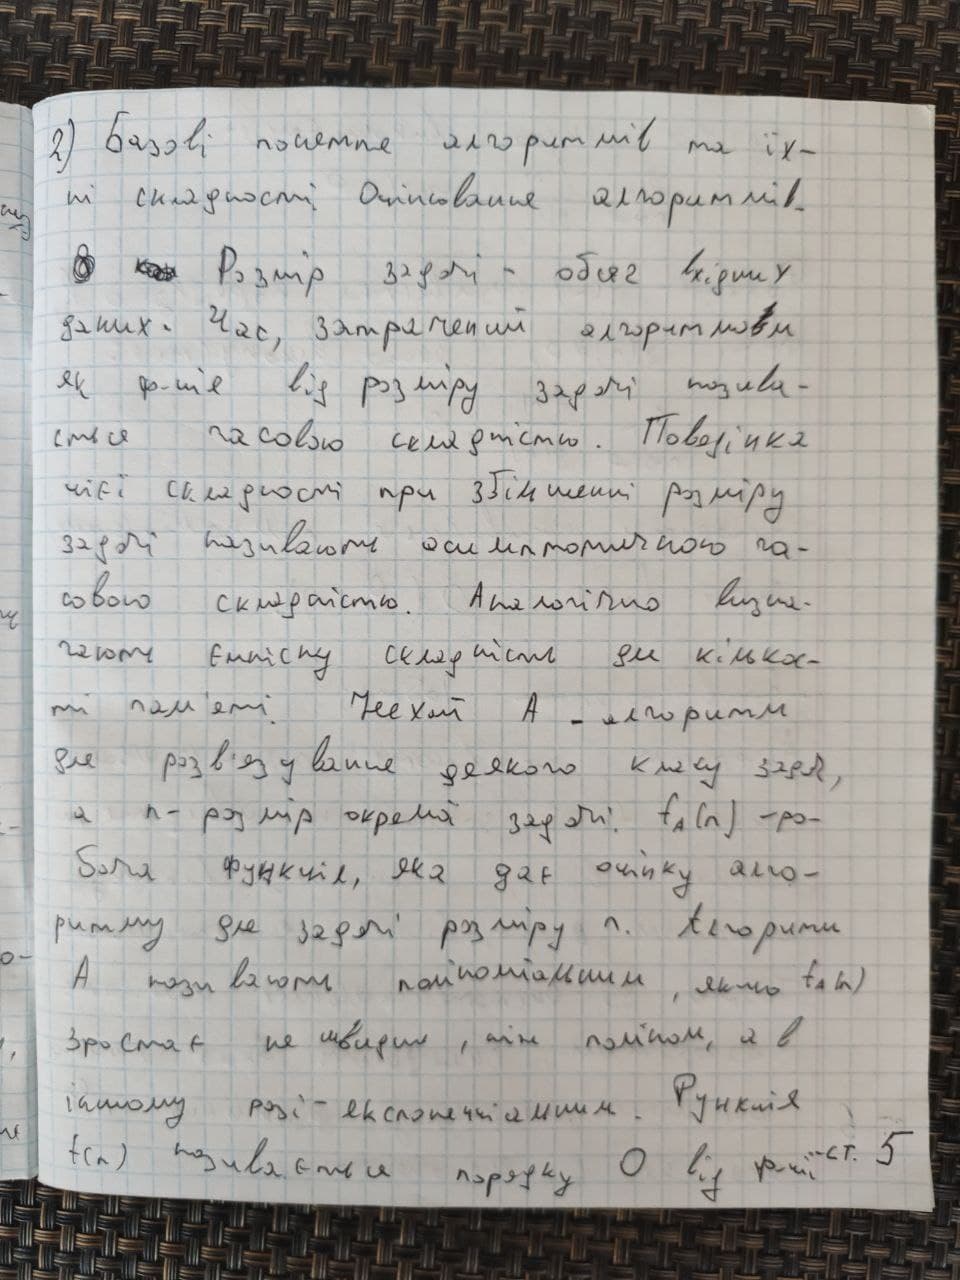 2) Базові поняття алгоритмів та їх-
ні складності. Оцінювання алгоритмів.
Розмір задачі - обсяг вхідних
даних. Час, затрачений алгоритмом
як ф-ція від розміру задачі назива-
ється часовою складністю. Поведінка
цієї складності при збільшенні розміру
задачі називають асимптотичною ча-
совою складністю. Аналогічно визна-
чають ємнісну складність для кількос-
ті пам'яті. Нехай A - алгоритм
для розв'язування деякого класу задач,
а n - розмір окремої задачі. fA(n) - ро-
боча функція, яка дає оцінку алго-
ритму для задачі розміру n. Алгоритм
A називають поліноміальним, якщо fA(n)
зростає не швидше, ніж поліном, а в
іншому разі - експоненціальним. Функція
f(n) називається порядку O від ф-ції
ст. 5